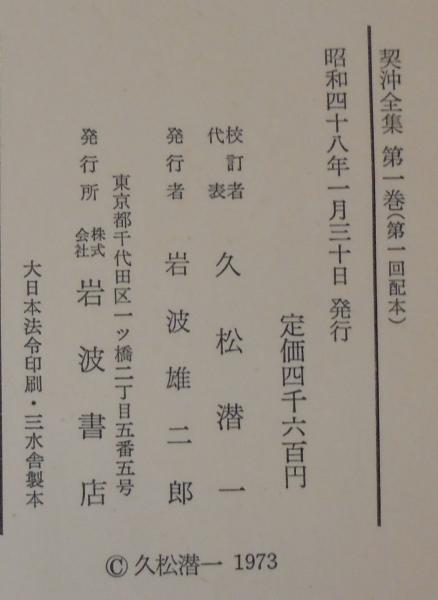 契沖全集 第一巻(第一回配本)
昭和四十八年一月三十日 発行
定価四千六百円
校訂者代表 久松潜一
発行者 岩波雄二郎
東京都千代田区一ツ橋二丁目五番五号
発行所 株式会社 岩波書店
大日本法令印刷・三水舎製本
© 久松潜一 1973